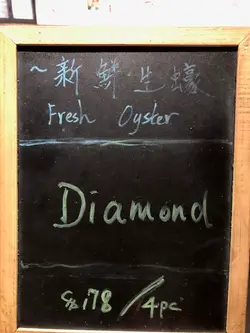 ~新鮮生蠔
Fresh Oyster
Diamond
178/4pc